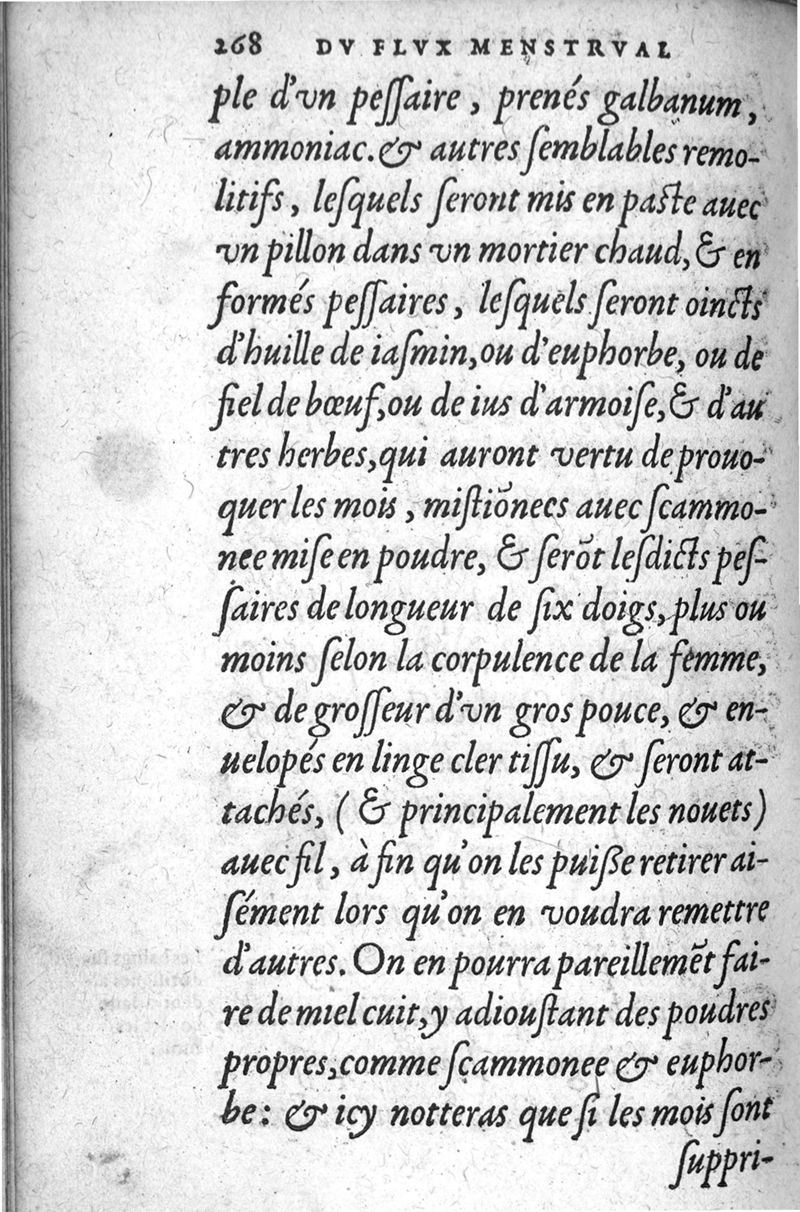 268 DV FLVX MENSTRVAL
ple d'vn peſſaire, prenés galbanum,
ammoniac. & autres ſemblables remo-
litifs, leſquels ſeront mis en paſte auec
vn pillon dans vn mortier chaud, & en
formés peſſaires, leſquels ſeront oincts
d'huille de iaſmin, ou d'euphorbe, ou de
fiel de bœuf, ou de ius d'armoiſe, & d'au
tres herbes, qui auront vertu de prouo-
quer les mois, miſtiōnees auec ſcammo-
nee miſe en poudre, & ſerōt leſdicts peſ-
ſaires de longueur de ſix doigs, plus ou
moins ſelon la corpulence de la femme,
& de groſſeur d'vn gros pouce, & en-
uelopés en linge cler tiſſu, & ſeront at-
tachés, (& principalement les nouets)
auec fil, à fin qu'on les puiſſe retirer ai-
ſément lors qu'on en voudra remettre
d'autres. On en pourra pareillemēt fai-
re de miel cuit, y adiouſtant des poudres
propres, comme ſcammonee & euphor-
be: & icy notteras que ſi les mois ſont
ſuppri-